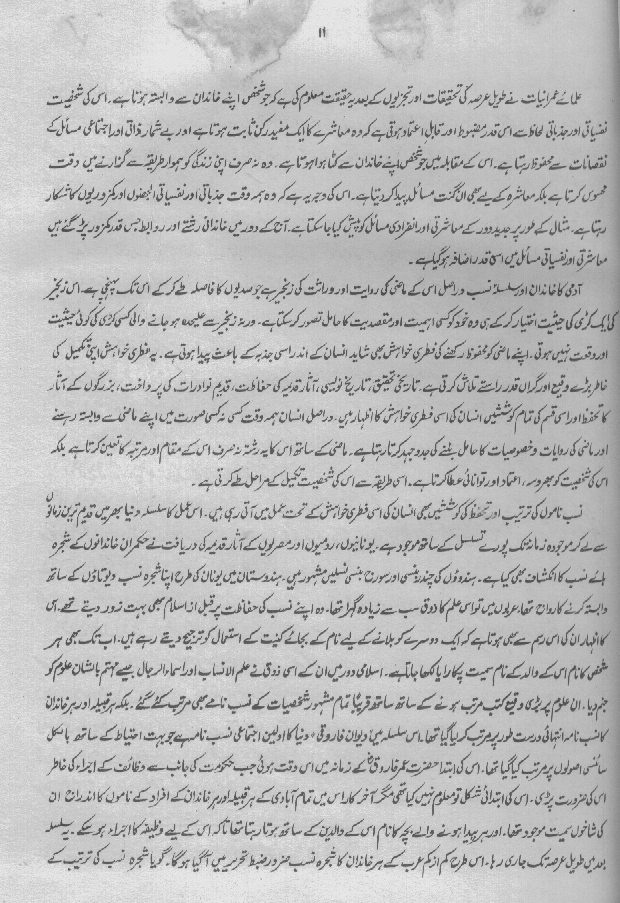 ۱۱
علمائے عمرانیات نے طویل عرصہ کی تحقیقات اور تجزیوں کے بعد یہ حقیقت معلوم کی ہے کہ جو شخص اپنے خاندان سے وابستہ ہوتا ہے۔ اس کی شخصیت
نفسیاتی اور جذباتی لحاظ سے اس قدر مضبوط اور قابل اعتماد ہوتی ہے کہ وہ معاشرے کا ایک مفید رکن ثابت ہوتا ہے اور بے شمار ذاتی اور اجتماعی مسائل کے
نقصانات سے محفوظ رہتا ہے۔ اس کے مقابلہ میں جو شخص اپنے خاندان سے کٹا ہوا ہوتا ہے۔ وہ نہ صرف اپنی زندگی کو ہموار طریقہ سے گزارنے میں دقت
محسوس کرتا ہے بلکہ معاشرہ کے لیے بھی ان گنت مسائل پیدا کر دیتا ہے۔ اس کی وجہ یہ ہے کہ وہ ہمہ وقت جذباتی اور نفسیاتی الجھنوں اور کمزوریوں کا شکار
رہتا ہے۔ مثال کے طور پر جدید دور کے معاشرتی اور انفرادی مسائل کو پیش کیا جا سکتا ہے۔ آج کے دور میں خاندانی رشتے اور روابط جس قدر کمزور پڑ گئے ہیں
معاشرتی اور نفسیاتی مسائل میں اسی قدر اضافہ ہو گیا ہے۔
آدمی کا خاندان اور سلسلۂ نسب دراصل اس کے ماضی کی روایت اور وراثت کی زنجیر ہے جو صدیوں کا فاصلہ طے کر کے اس تک پہنچی ہے۔ اس زنجیر
کی ایک کڑی کی حیثیت اختیار کر کے ہی وہ خود کو کسی اہمیت اور مقصدیت کا حامل تصور کر سکتا ہے۔ ورنہ زنجیر سے علیحدہ ہو جانے والی کسی کڑی کی کوئی حیثیت
اور وقعت نہیں ہوتی۔ اپنے ماضی کو محفوظ رکھنے کی فطری خواہش بھی شاید انسان کے اندر اسی جذبہ کے باعث پیدا ہوتی ہے۔ یہ فطری خواہش اپنی تکمیل کی
خاطر بڑے وقیع اور گراں قدر راستے تلاش کرتی ہے۔ تاریخی تحقیق، تاریخ نویسی، آثار قدیمہ کی حفاظت، قدیم نوادرات کی پرداخت، بزرگوں کے آثار
کا تحفظ اور اسی قسم کی تمام کوششیں انسان کی اسی فطری خواہش کا اظہار ہیں۔ دراصل انسان ہمہ وقت کسی نہ کسی صورت میں اپنے ماضی سے وابستہ رہنے
اور ماضی کی روایات و خصوصیات کا حامل بننے کی جدوجہد کرتا رہتا ہے۔ ماضی کے ساتھ اس کا یہ رشتہ نہ صرف اس کے مقام اور مرتبہ کا تعین کرتا ہے بلکہ
اس کی شخصیت کو بھروسہ، اعتماد اور توانائی عطا کرتا ہے۔ اسی طریقہ سے اس کی شخصیت تکمیل کے مراحل طے کرتی ہے۔
نسب ناموں کی ترتیب اور تحفظ کی کوششیں بھی انسان کی اسی فطری خواہش کے تحت عمل میں آتی رہی ہیں۔ اس عمل کا سلسلہ دنیا بھر میں قدیم ترین زمانوں
سے لے کر موجودہ زمانہ تک پورے تسلسل کے ساتھ موجود ہے۔ یونانیوں، رومیوں اور مصریوں کے آثار قدیمہ کی دریافت نے حکمران خاندانوں کے شجرہ
ہائے نسب کا انکشاف بھی کیا ہے۔ ہندوؤں کی چندر بنسی اور سورج بنسی نسلیں مشہور ہیں۔ ہندوستان میں یونان کی طرح اپنا شجرہ نسب دیوتاؤں کے ساتھ
وابستہ کرنے کا رواج تھا۔ عربوں میں تو اس علم کا ذوق سب سے زیادہ گہرا تھا۔ وہ اپنے نسب کی حفاظت پر قبل از اسلام بھی بہت زور دیتے تھے۔ اس
کا اظہار ان کی اس رسم سے بھی ہوتا ہے کہ ایک دوسرے کو بلانے کے لیے نام کے بجائے کنیت کے استعمال کو ترجیح دیتے رہے ہیں۔ اب تک بھی ہر
شخص کا نام اس کے والد کے نام سمیت پکارا یا لکھا جاتا ہے۔ اسلامی دور میں ان کے اسی ذوق نے علم الانساب اور اسماء الرجال جیسے مہتم بالشان علوم کو
جنم دیا۔ ان علوم پر بڑی وقیع کتب مرتب ہونے کے ساتھ ساتھ قریباً تمام مشہور شخصیات کے نسب نامے بھی مرتب کئے گئے۔ بلکہ ہر قبیلہ اور ہر خاندان
کا نسب نامہ انتہائی درست طور پر مرتب کر لیا گیا تھا۔ اس سلسلہ میں دیوان فاروقی دنیا کا اولین اجتماعی نسب نامہ ہے جو بہت احتیاط کے ساتھ بالکل
سائنسی اصولوں پر مرتب کیا گیا تھا۔ اس کی ابتدا حضرت عمر فاروقؓ کے زمانہ میں اس وقت ہوئی جب حکومت کی جانب سے وظائف کے اجراء کی خاطر
اس کی ضرورت پڑی۔ اس کی ابتدائی شکل تو معلوم نہیں کیا تھی مگر آخر کار اس میں تمام آبادی کے ہر قبیلہ اور ہر خاندان کے افراد کے ناموں کا اندراج ان
کی شاخوں سمیت موجود تھا۔ اور ہر پیدا ہونے والے بچہ کا نام اس کے والدین کے ساتھ ہوتا رہتا تھا تاکہ اس کے لیے وظیفہ کا اجراء ہو سکے۔ یہ سلسلہ
بعد میں طویل عرصہ تک جاری رہا۔ اس طرح کم از کم عرب کے ہر خاندان کا شجرہ نسب ضرور ضبط تحریر میں آ گیا ہوگا۔ گویا شجرہ نسب کی ترتیب کے